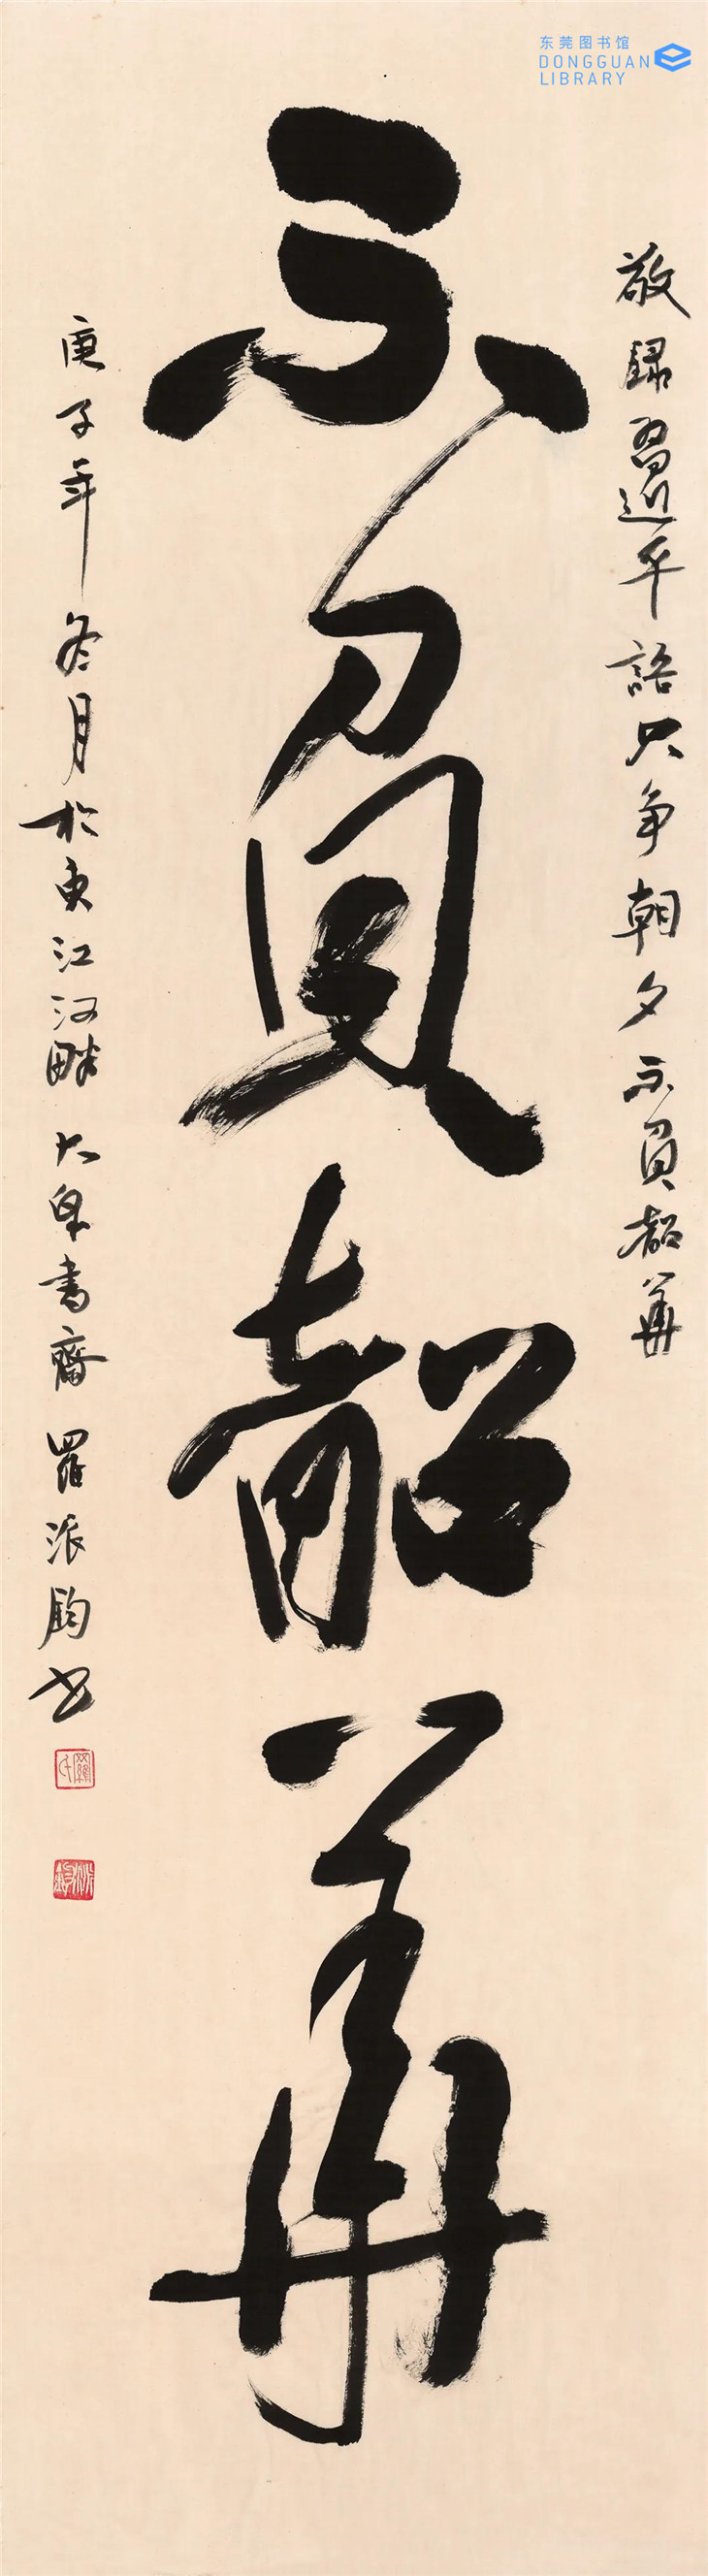 东莞图书馆
DONGGUAN
LIBRARY
敬録習近平語只争朝夕不負韶華
不負韶華
庚子年冬月於東江河畔大阜書齋羅派鈞书
羅氏